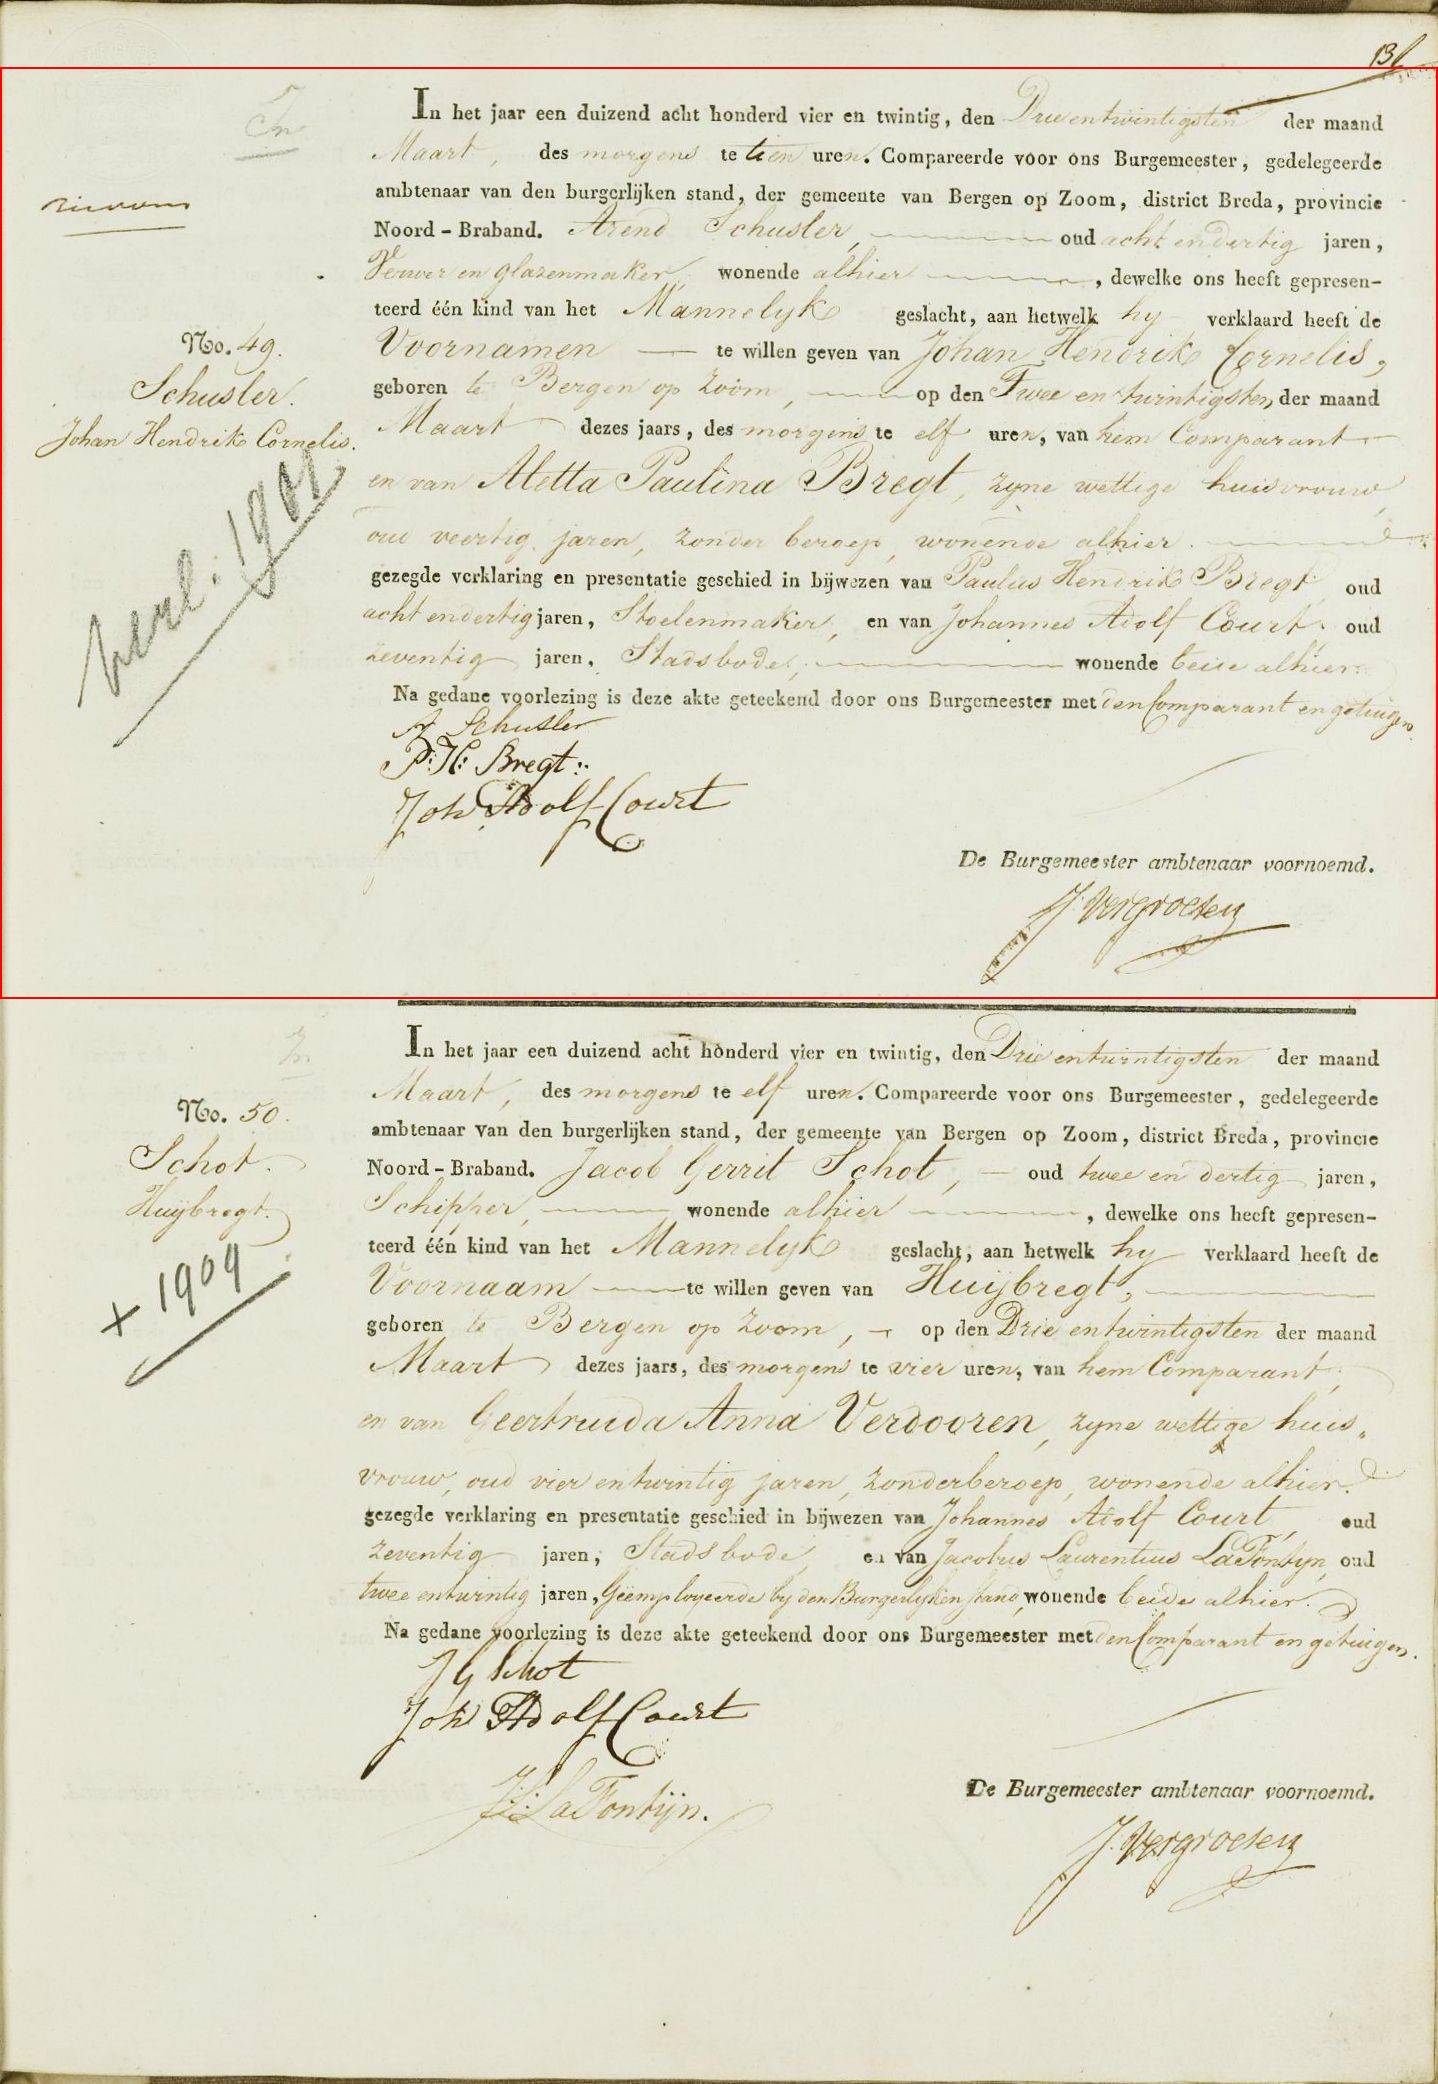 13
In het jaar een duizend acht honderd vier en twintig, den Drie en twintigsten der maand
Maart, des morgens te tien uren. Compareerde voor ons Burgemeester, gedelegeerde
ambtenaar van den burgerlijken stand, der gemeente van Bergen op Zoom, district Breda, provincie
Noord-Braband. Arend Schusler, oud acht en dertig jaren,
Verwer en glazenmaker, wonende alhier, dewelke ons heeft gepresen-
teerd één kind van het Mannelyk geslacht, aan hetwelk hy verklaard heeft de
No. 49.
Voornamen te willen geven van Johan Hendrik Cornelis,
Schusler.
geboren te Bergen op Zoom, op den Twee en twintigsten der maand
Johan Hendrik Cornelis.
Maart dezes jaars, des morgens te elf uren, van hem Comparant
en van Aletta Paulina Bregt, zyne wettige huisvrouw,
oud veertig jaren, zonder beroep, wonende alhier.
gezegde verklaring en presentatie geschied in bijwezen van Paulus Hendrik Bregt oud
acht en dertig jaren, Stoelenmaker, en van Johannes Adolf Court oud
zeventig jaren, Stadsbode, wonende beide alhier.
Na gedane voorlezing is deze akte geteekend door ons Burgemeester met den Comparant en getuigen.
A Schusler
P: H: Bregt:
Joh Adolf Court
De Burgemeester ambtenaar voornoemd.
J. Vergroesen
In het jaar een duizend acht honderd vier en twintig, den Drie en twintigsten der maand
Maart, des morgens te elf uren. Compareerde voor ons Burgemeester, gedelegeerde
No. 50.
ambtenaar van den burgerlijken stand, der gemeente van Bergen op Zoom, district Breda, provincie
Schot.
Noord-Braband. Jacob Gerrit Schot, oud twee en dertig jaren,
Huijbregt.
Schipper, wonende alhier, dewelke ons heeft gepresen-
teerd één kind van het Mannelyk geslacht, aan hetwelk hy verklaard heeft de
+ 1909
Voornaam te willen geven van Huijbregt,
geboren te Bergen op Zoom, op den Drie en twintigsten der maand
Maart dezes jaars, des morgens te vier uren, van hem Comparant,
en van Geertruida Anna Verdooren, zyne wettige huis„
vrouw, oud vier en twintig jaren, zonder beroep, wonende alhier.
gezegde verklaring en presentatie geschied in bijwezen van Johannes Adolf Court, oud
zeventig jaren, Stadsbode, en van Jacobus Laurentius LaFontyn, oud
twee en twintig jaren, Geëmployeerde by den Burgerlyken stand, wonende beide alhier.
Na gedane voorlezing is deze akte geteekend door ons Burgemeester met den Comparant en getuigen.
J G Schot
Joh Adolf Court
J: L: LaFontijn.
De Burgemeester ambtenaar voornoemd.
J. Vergroesen